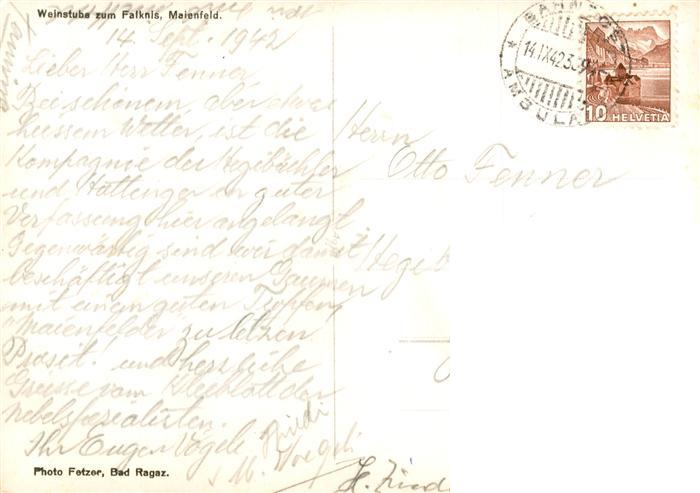 Weinstube zum Falknis, Maienfeld.
14. Sept. 1942
Lieber Herr Fenner
Bei schönem, aber etwas
heissem Wetter, ist die
Kompagnie der Hegibächler
und Hottinger in guter
Verfassung hier angelangt.
Gegenwärtig sind wir damit
beschäftigt unseren Gaumen
mit einem guten Tropfen
"Maienfelder" zu letzen.
Prosit! und herzliche
Grüsse vom Kleeblatt der
Nebelspezialisten.
Ihr Eugen Vögeli
Photo Fetzer, Bad Ragaz.
14.IX.42
AMBULANT
10 HELVETIA
Herrn
Otto Fenner